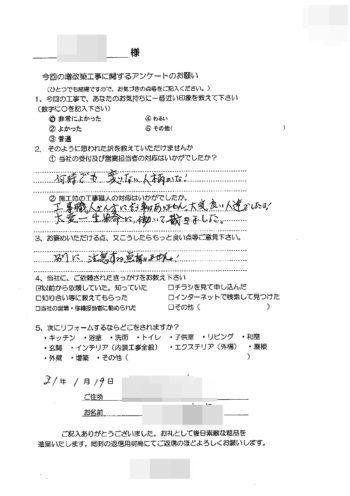 様
今回の増改築工事に関するアンケートのお願い
(ひとつでも結構ですので、お気づきの点等をご記入ください。)
1、今回の工事で、あなたのお気持ちに一番近い印象を教えて下さい
(数字に○を記入下さい)
① 非常によかった ④ わるい
② よかった ⑤ その他( )
③ 普通
2、そのように思われた訳を教えていただけませんか
① 当社の受付及び営業担当者の対応はいかがでしたか?
何時でも、変りない人柄かな!
② 施工中の工事職人の対応はいかがでしたか。
工事職人さん方に
大変一生懸命に、働いて戴きました。
3、お褒めいただける点、又こうしたらもっと良い点等ご意見下さい。
別に、注意する点有りません!
4、当社に、ご依頼されたきっかけをお教え下さい
☑以前から依頼していた。知っていた □チラシを見て申し込んだ
□知り合い等に教えてもらった □インターネットで検索して見つけた
□当社の営業・現場担当者に勧められた □その他( )
5、次にリフォームするならどこをされますか?
・キッチン ・浴室 ・洗面 ・トイレ ・子供室 ・リビング ・和室
・玄関 ・インテリア(内装工事全般) ・エクステリア(外構) ・屋根
・外壁 ・増築 ・その他( )
31年 1月 19日
ご住所
お名前
ご記入ありがとうございました。お礼として後日素敵な粗品を
進呈いたします。同封の返信用封筒にてご返信のほどよろしくお願いします。